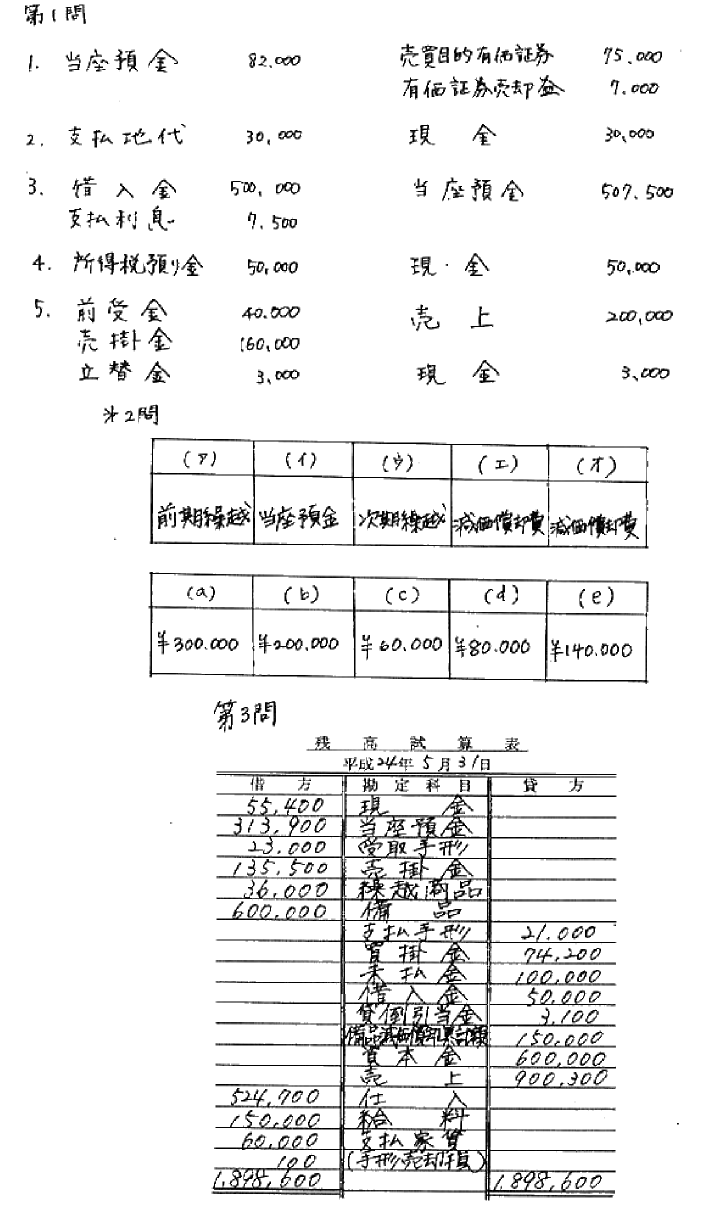 第1問
1. 当座預金 82,000 売買目的有価証券 75,000
有価証券売却益 7,000
2. 支払地代 30,000 現金 30,000
3. 借入金 500,000 当座預金 507,500
支払利息 7,500
4. 所得税預り金 50,000 現金 50,000
5. 前受金 40,000 売上 200,000
売掛金 160,000
立替金 3,000 現金 3,000
第2問
(ア) (イ) (ウ) (エ) (オ)
前期繰越 当座預金 次期繰越 減価償却費 減価償却費
(a) (b) (c) (d) (e)
¥300,000 ¥200,000 ¥60,000 ¥80,000 ¥140,000
第3問
残高試算表
平成24年5月31日
借方 勘定科目 貸方
55,400 現金
313,900 当座預金
23,000 受取手形
135,500 売掛金
36,000 繰越商品
600,000 備品
支払手形 21,000
買掛金 74,200
未払金 100,000
借入金 50,000
貸倒引当金 3,100
備品減価償却累計額 150,000
資本金 600,000
売上 900,300
524,700 仕入
150,000 給料
60,000 支払家賃
100 (手形売却損)
1,898,600 1,898,600